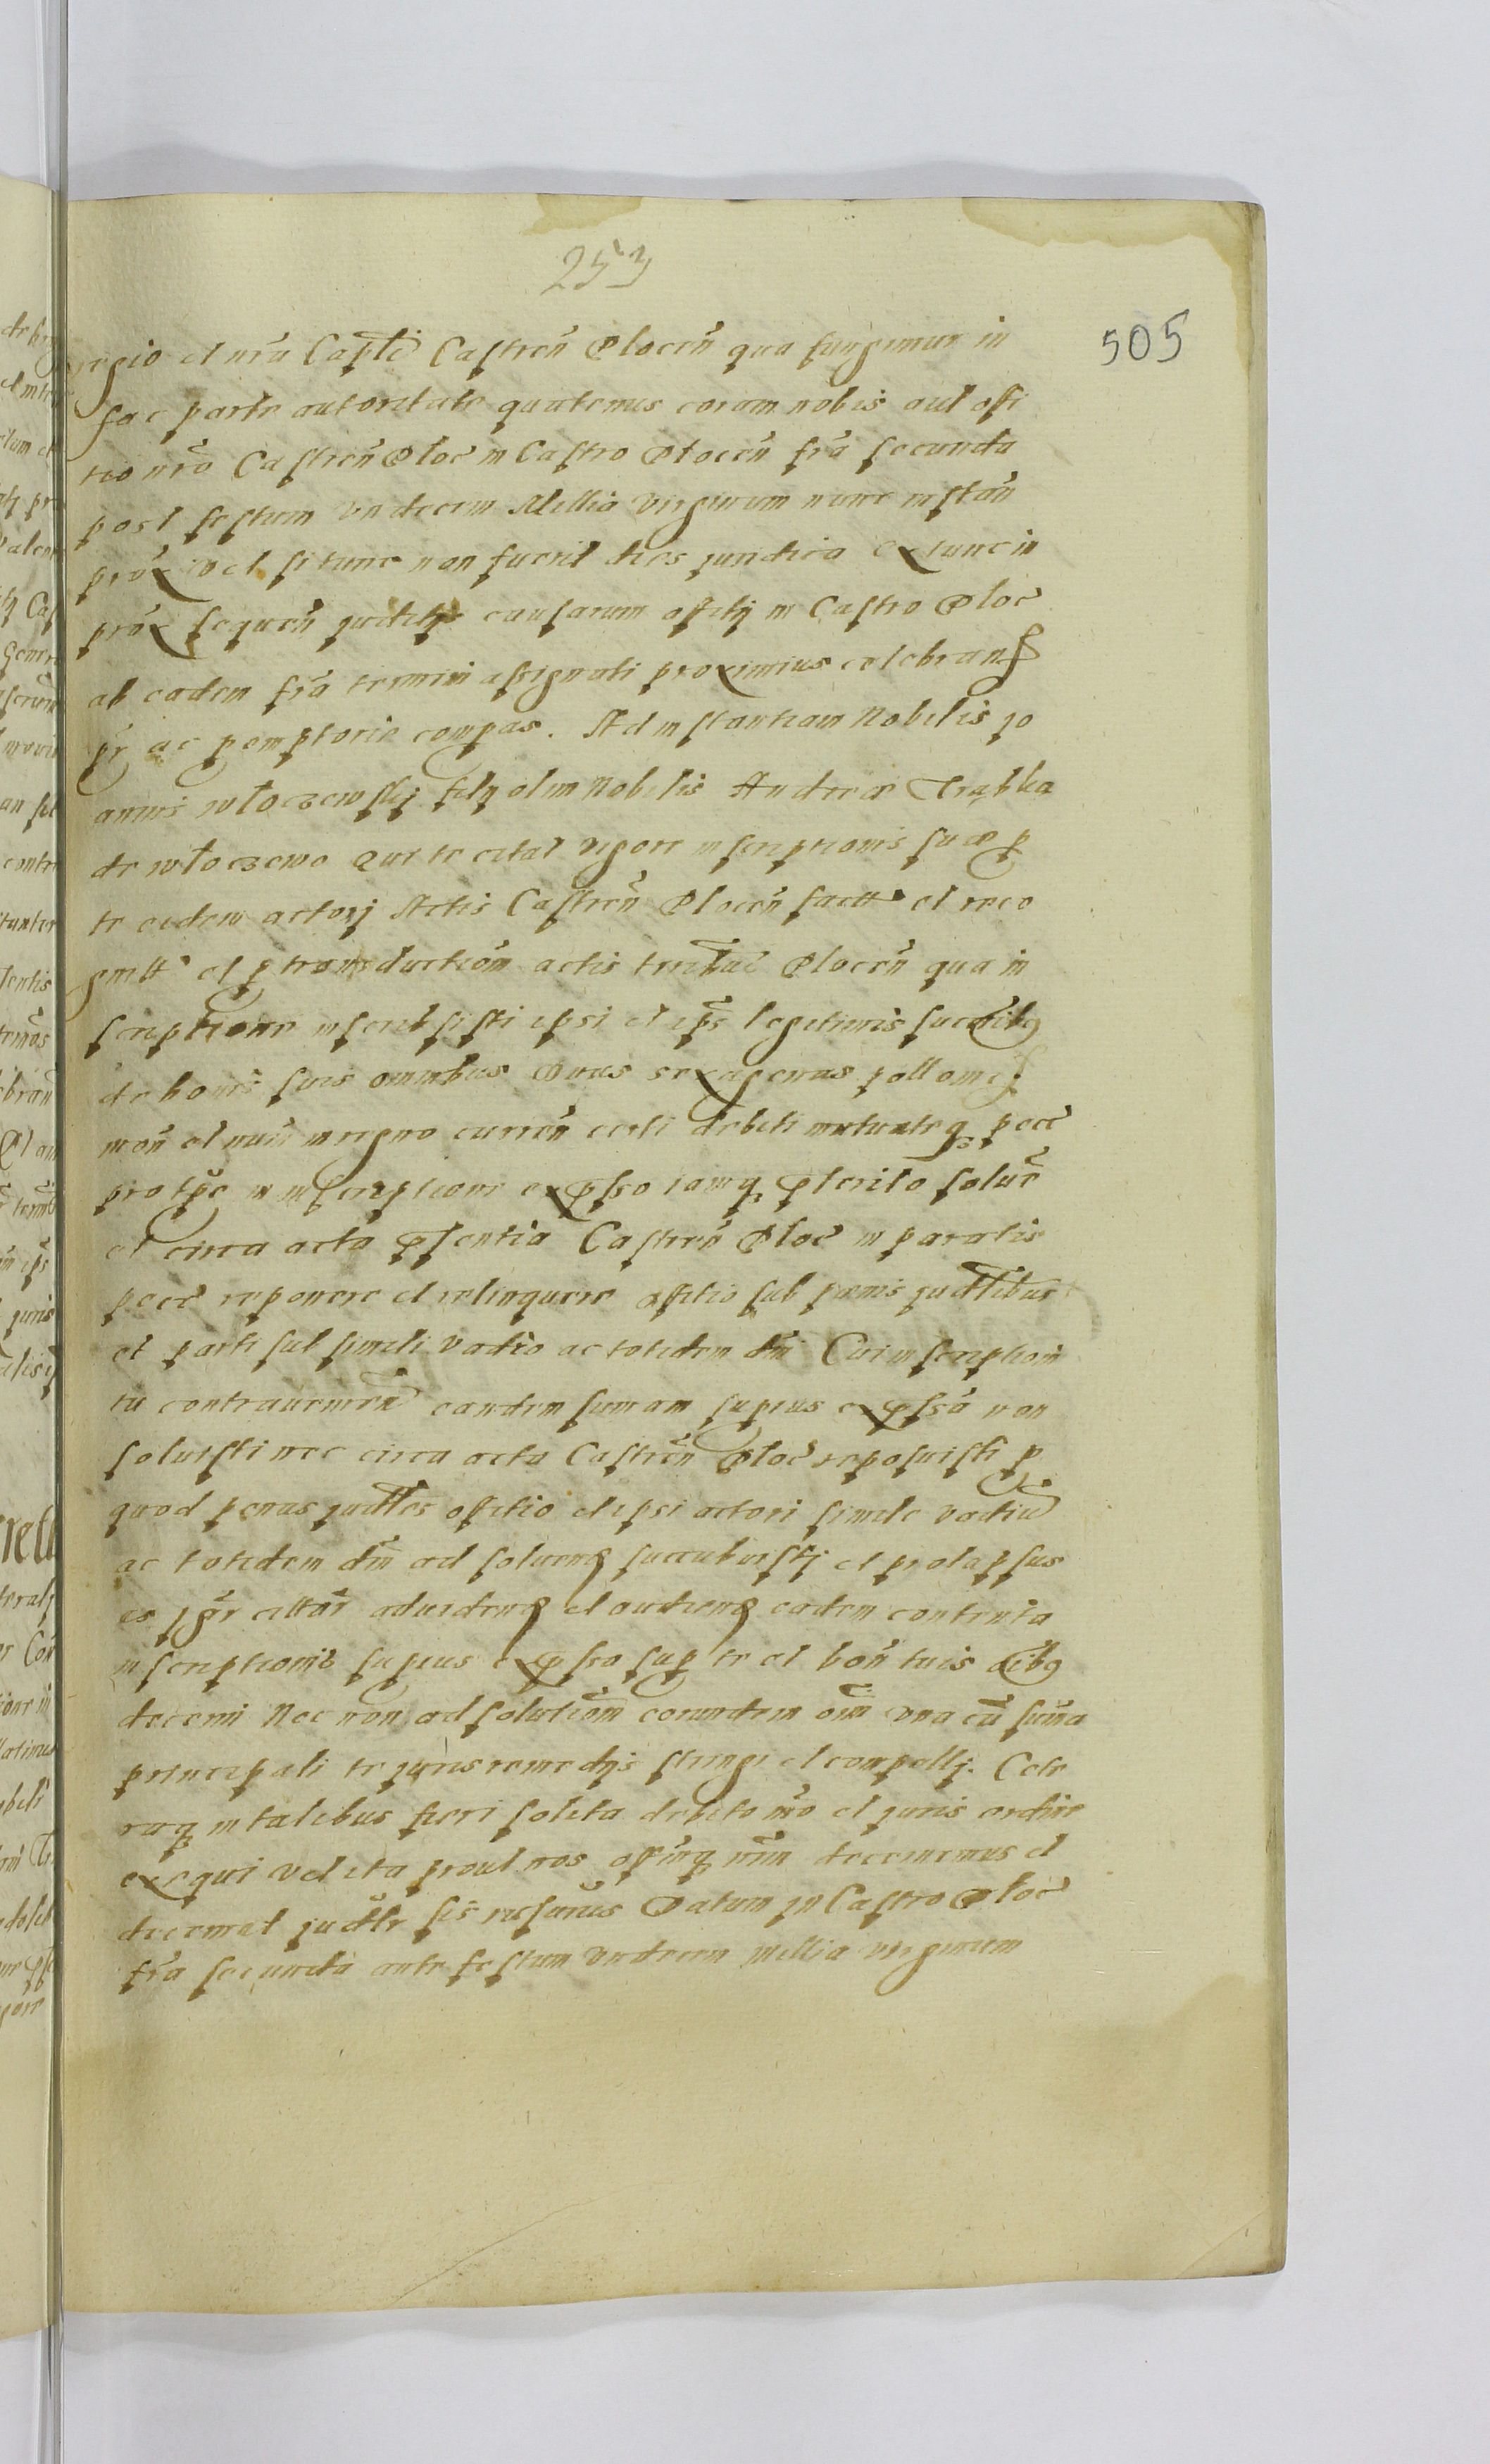 253
505
regio et nr̃a Capitl̃i Castren̄ Plocen̄ qua fungimur in
hac parte autoritate quatenus coram nobis aut offi
tio nr̃o Castren̄ Ploc̃ in Castro Plocen̄ fr̃a secunda
post festum vndecem Millia Virginum nunc instan̄
prox̃ vel si tunc non fuerit dies juridica extunc in
prox̃ sequen̄ judicijs causarum offitij in Castro Ploc̃
ab eadem fr̃a termini assignati proximius celebrand
pr̃ ac pemptorie compas. Ad instantiam Nobilis Jo
annis Włoczewskj filij olim Nobilis Andreæ Trąbka
de Włoczewo Qui te citat vigore inscriptionis suæ p
te eidem actorj Actis Castren̄ Plocen̄ factæ et reco
gnitæ et p transductiōm actis Plocen̄ qua in
scriptione inscribsisti ipsi et ips̄ legitimis succ̃ribq
de bonis suis omnibus Duas sexagenas
mon̄ et nuī in regno curren̄ certi debiti mutuateq pecc̃
pro tp̃e in inscriptione expsso iamq pterito soluẽ
et circa acta psentia Castren̄ Ploc̃ in paratis
pecc̃ reponere et relinquere offitio sub pænis judtlibus
et parti sub simili vadio ac totidem dm̃ Cui inscriptiom
tu contrauenien̄ eandem sumam supius expssã non
soluisti nec circa acta Castren̄ Ploc̃ reposuisti p
quod penas judtles offitio et ipsi actori simile vadiũ
ac totidem dm̃ ad soluend succubuistj et prolapsus
es Igr̃ cittar̃ aduidend et audiend eadem contenta
inscriptionis supius expsso sup te et bon̄ tuis õibq
decerni Nec non ad solutiõm eorundem om̃ vna cũ suma
principali te juris remedijs stringi et compellj. Cete
raq in talibus fieri solita debito mõ et juris ordine
exequi Vel ita prout nos offm̃q nrm̃ decernemus et
decernet judtlr sis visurus Datum jn Castro Ploc̃
fr̃a secunda ante festum vndecem Millia virginum